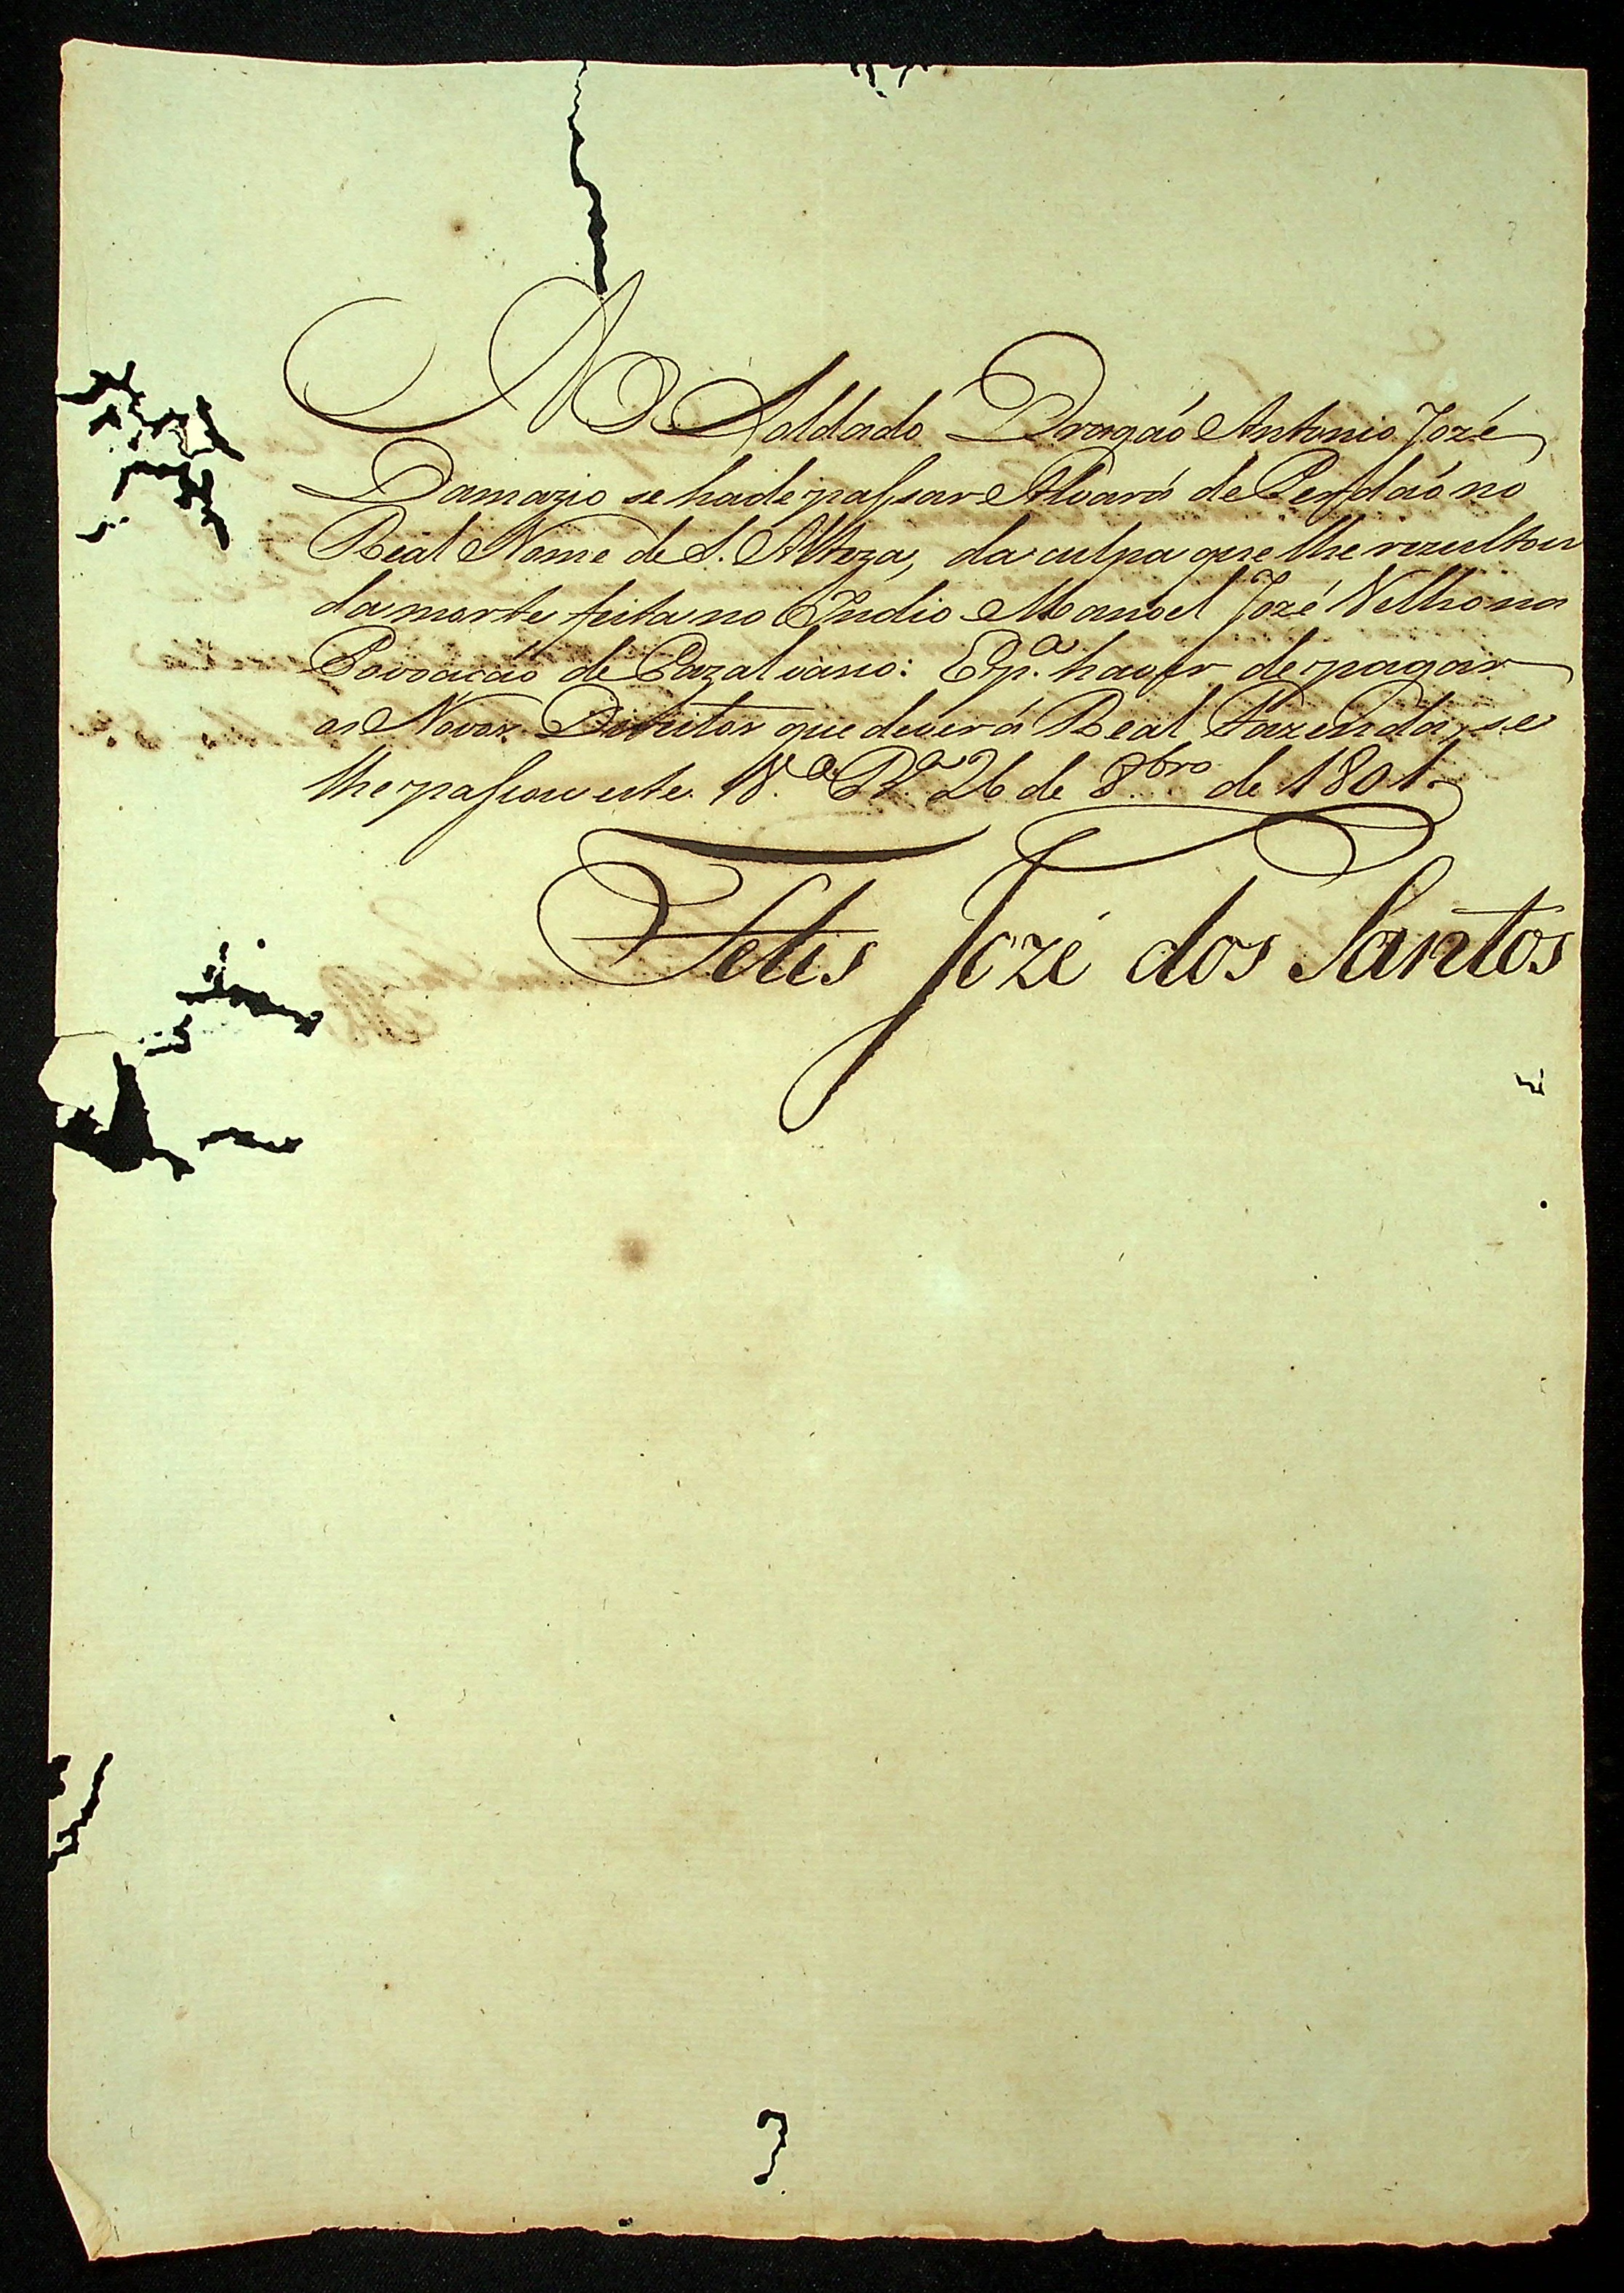 Ao Soldado Dragaõ Antonio Jozé
Damazio se hade passar Alvará de Perdaõ no
Real Nome de S. Alteza, da culpa que lhe rezultou
da morte feita no Indio Manoel Jozé Velho na
Povoacaõ de Cazalvasco: E p.ª haver de pagar
os Novos Direitos que dever á Real Fazenda, se
lhe passou este. V.ª B.ª 26 de 8.bro de 1801.
Felis Jozé dos Santos